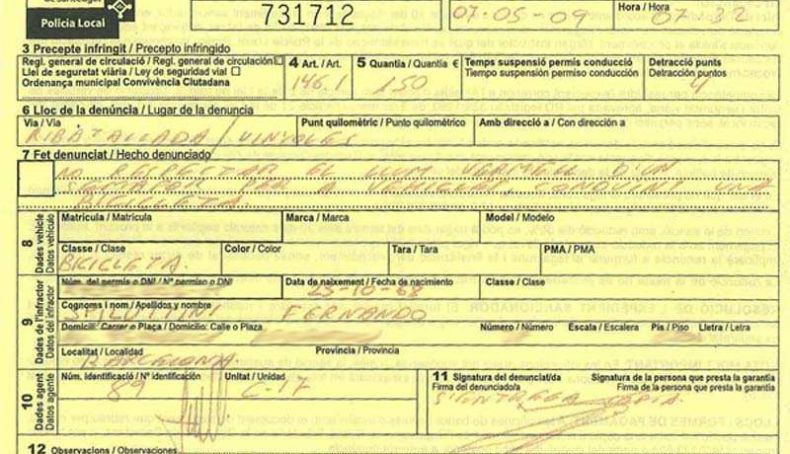 Policia Local
731712
07-05-09
Hora / Hora
07 32
3 Precepte infringit / Precepto infringido
Regl. general de circulació / Regl. general de circulación
Llei de seguretat viària / Ley de seguridad vial
Ordenança municipal Convivència Ciutadana
4 Art. / Art.
146.1
5 Quantia / Quantia €
150
Temps suspensió permís conducció
Tiempo suspensión permiso conducción
Detracció punts
Detracción puntos
4
6 Lloc de la denúncia / Lugar de la denuncia
Via / Via
RIBATALLADA / VINYOLES
Punt quilomètric / Punto quilométrico
Amb direcció a / Con dirección a
7 Fet denunciat / Hecho denunciado
NO RESPECTAR EL LLUM VERMELL D'UN
SEMAFOR PER A VEHICLES, CONDUINT UNA
BICICLETA.
8 Dades vehicle
Datos vehículo
Matrícula / Matrícula
Marca / Marca
Model / Modelo
Classe / Clase
BICICLETA.
Color / Color
Tara / Tara
PMA / PMA
9 Dades de l'infractor
Datos del infractor
Núm. del permís o DNI / Nº permiso o DNI
Data de naixement / Fecha de nacimiento
25-10-68
Classe / Clase
Cognoms i nom / Apellidos y nombre
SPILUTTINI FERNANDO
Domicili: Carrer o Plaça / Domicilio: Calle o Plaza
Número / Número
Escala / Escalera
Pis / Piso
Lletra / Letra
Localitat / Localidad
BARCELONA
Província / Provincia
10 Dades agent
Datos agente
Núm. identificació / Nº identificación
89
Unitat / Unidad
C-17
11 Signatura del denunciat/da
Firma del denunciado/a
Signatura de la persona que presta la garantia
Firma de la persona que presta la garantía
S'ENTREGA COPIA.
12 Observacions / Observaciones